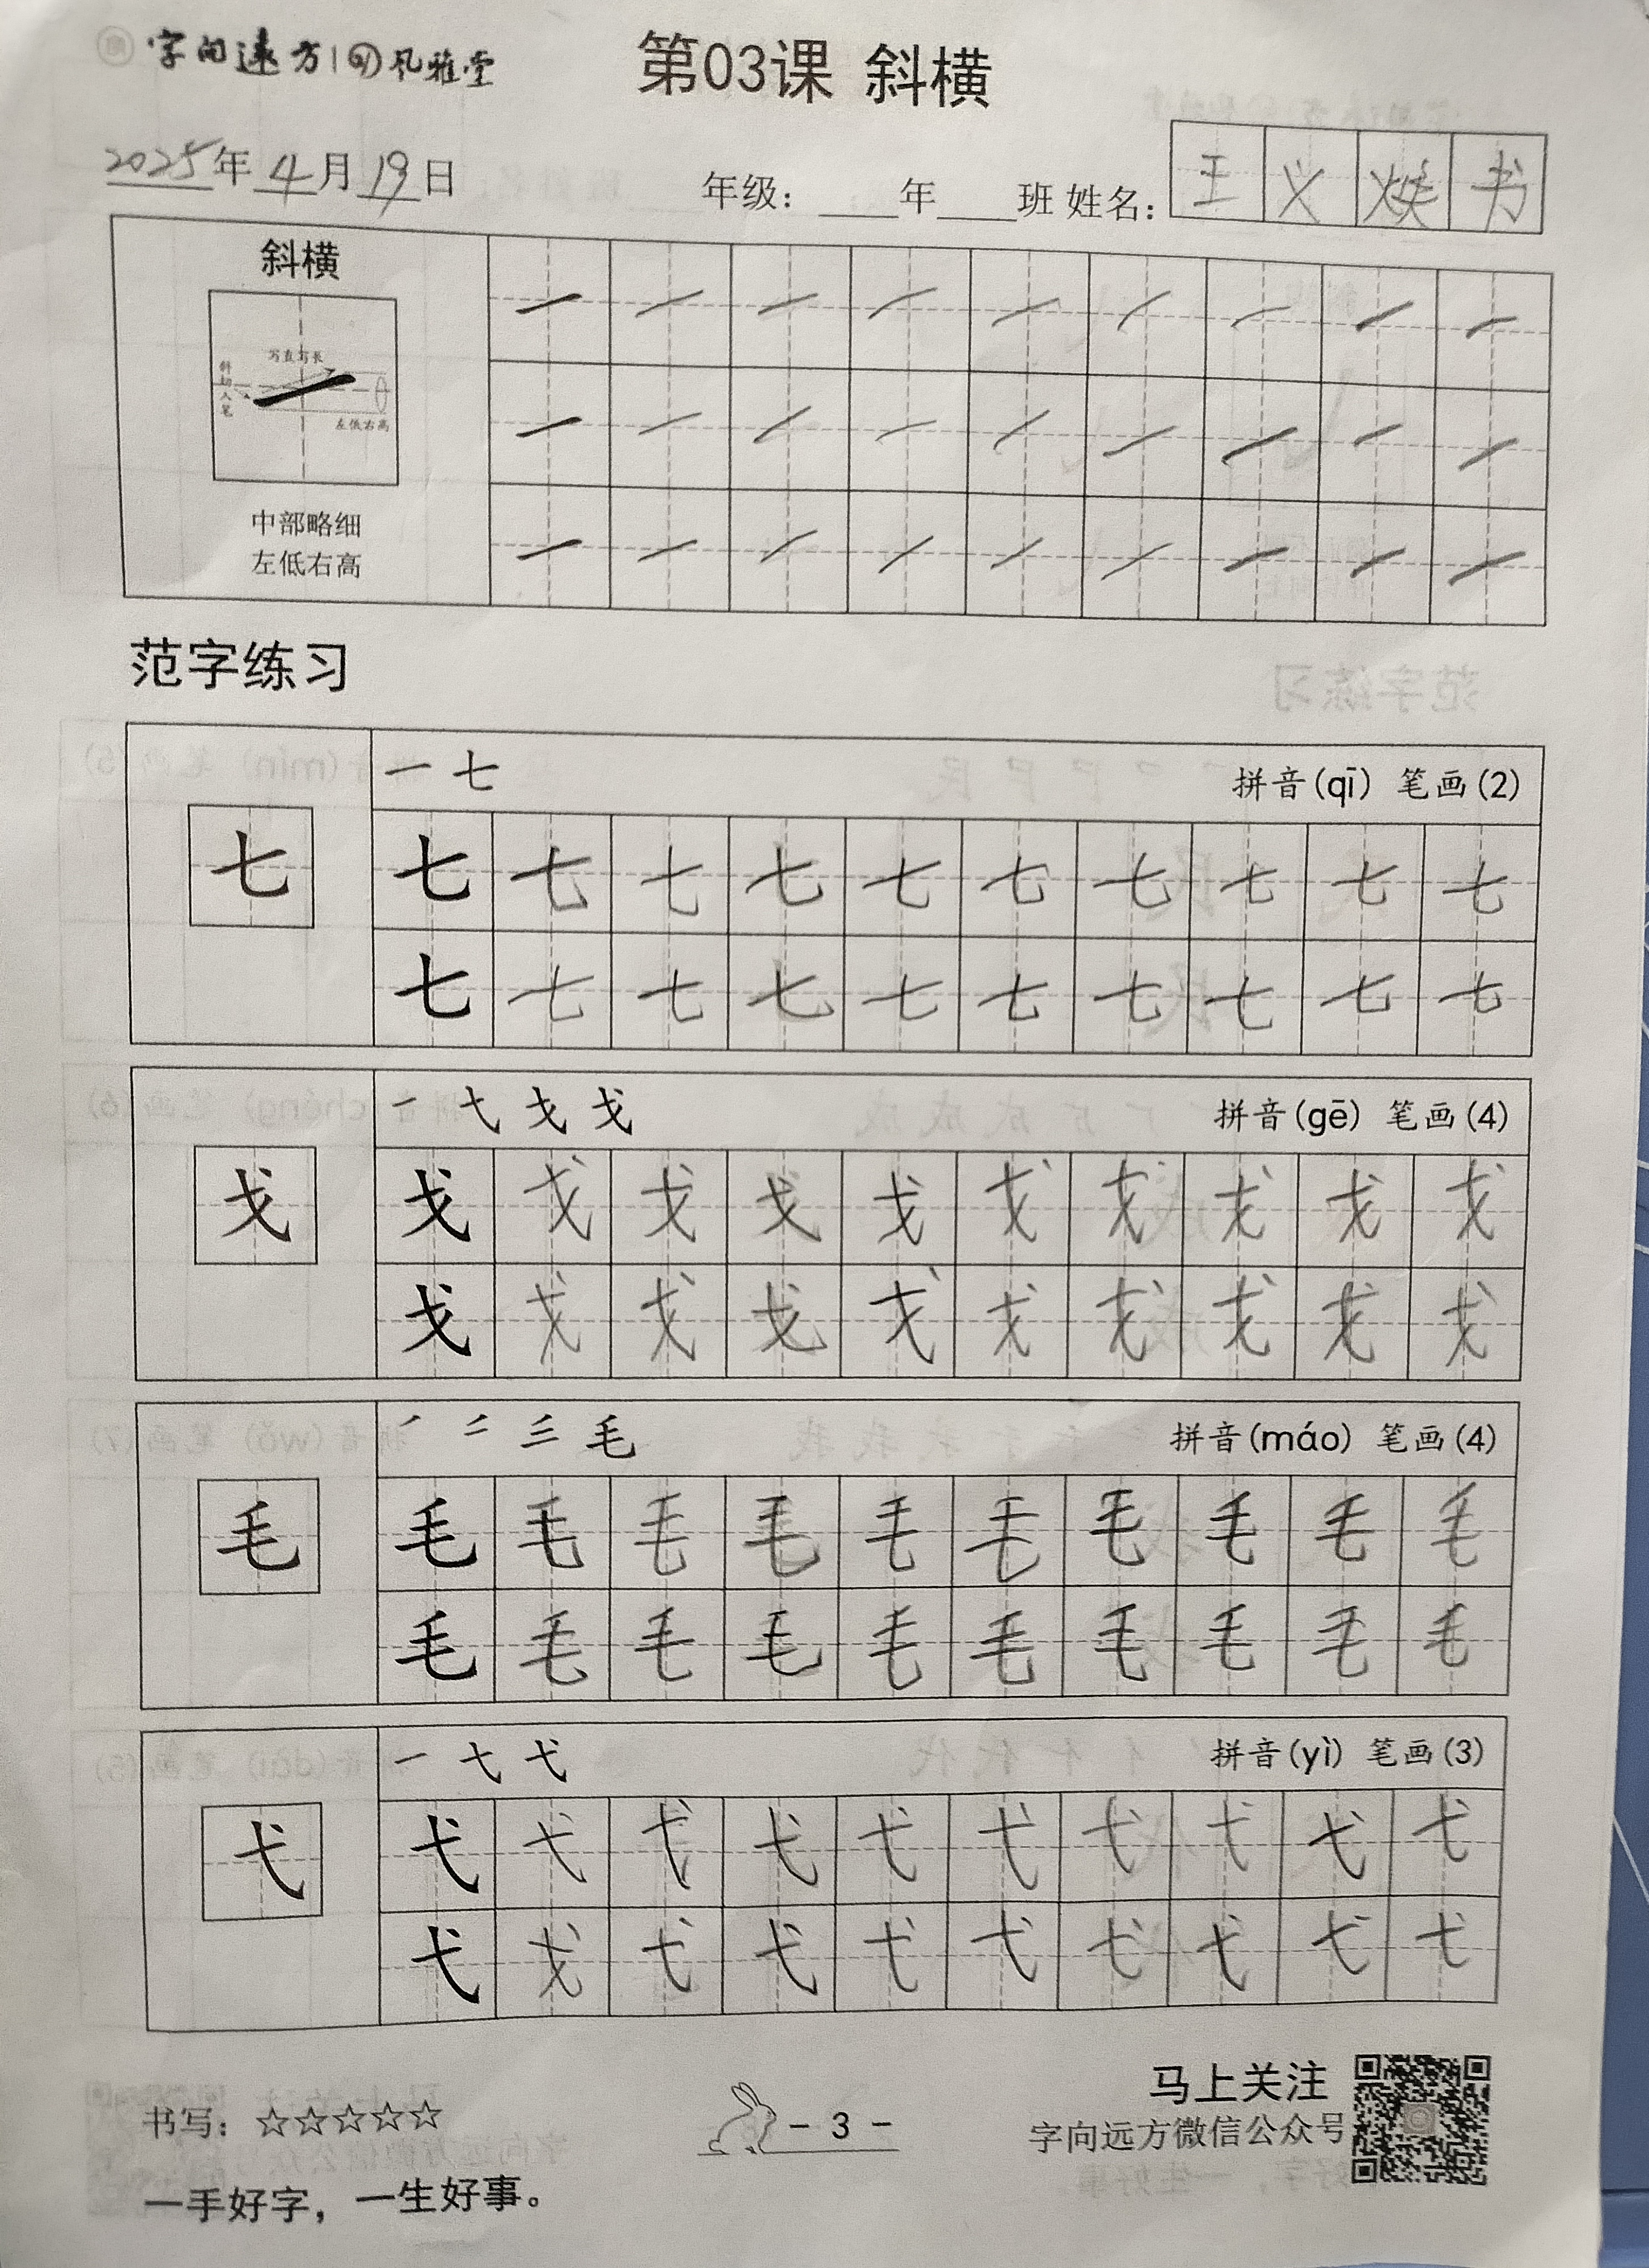 字向远方 风雅堂
第03课 斜横
2025年4月19日 年级：____年____班 姓名：王义焕书
斜横
斜切入笔 写直写长
左低右高
中部略细
左低右高
范字练习
一 七 拼音(qī) 笔画(2)
七 七 七 七 七 七 七 七 七 七 七
七 七 七 七 七 七 七 七 七 七
拼音(gē) 笔画(4)
戈 戈 戈 戈 戈 戈 戈 戈 戈 戈 戈
戈 戈 戈 戈 戈 戈 戈 戈 戈 戈
毛 拼音(máo) 笔画(4)
毛 毛 毛 毛 毛 毛 毛 毛 毛 毛 毛
毛 毛 毛 毛 毛 毛 毛 毛 毛 毛
一 弋 拼音(yì) 笔画(3)
弋 弋 弋 弋 弋 弋 弋 弋 弋 弋 弋
弋 戈 弋 弋 弋 弋 弋 弋 弋 弋
书写：☆☆☆☆☆
- 3 -
马上关注
字向远方微信公众号
一手好字，一生好事。